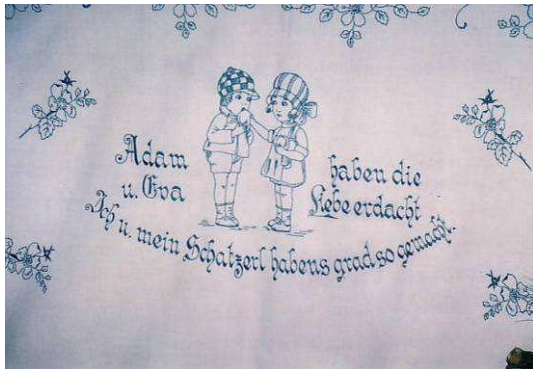 Adam haben die
u. Eva Liebe erdacht
Ich u. mein Schatzerl habens grad so gemacht.